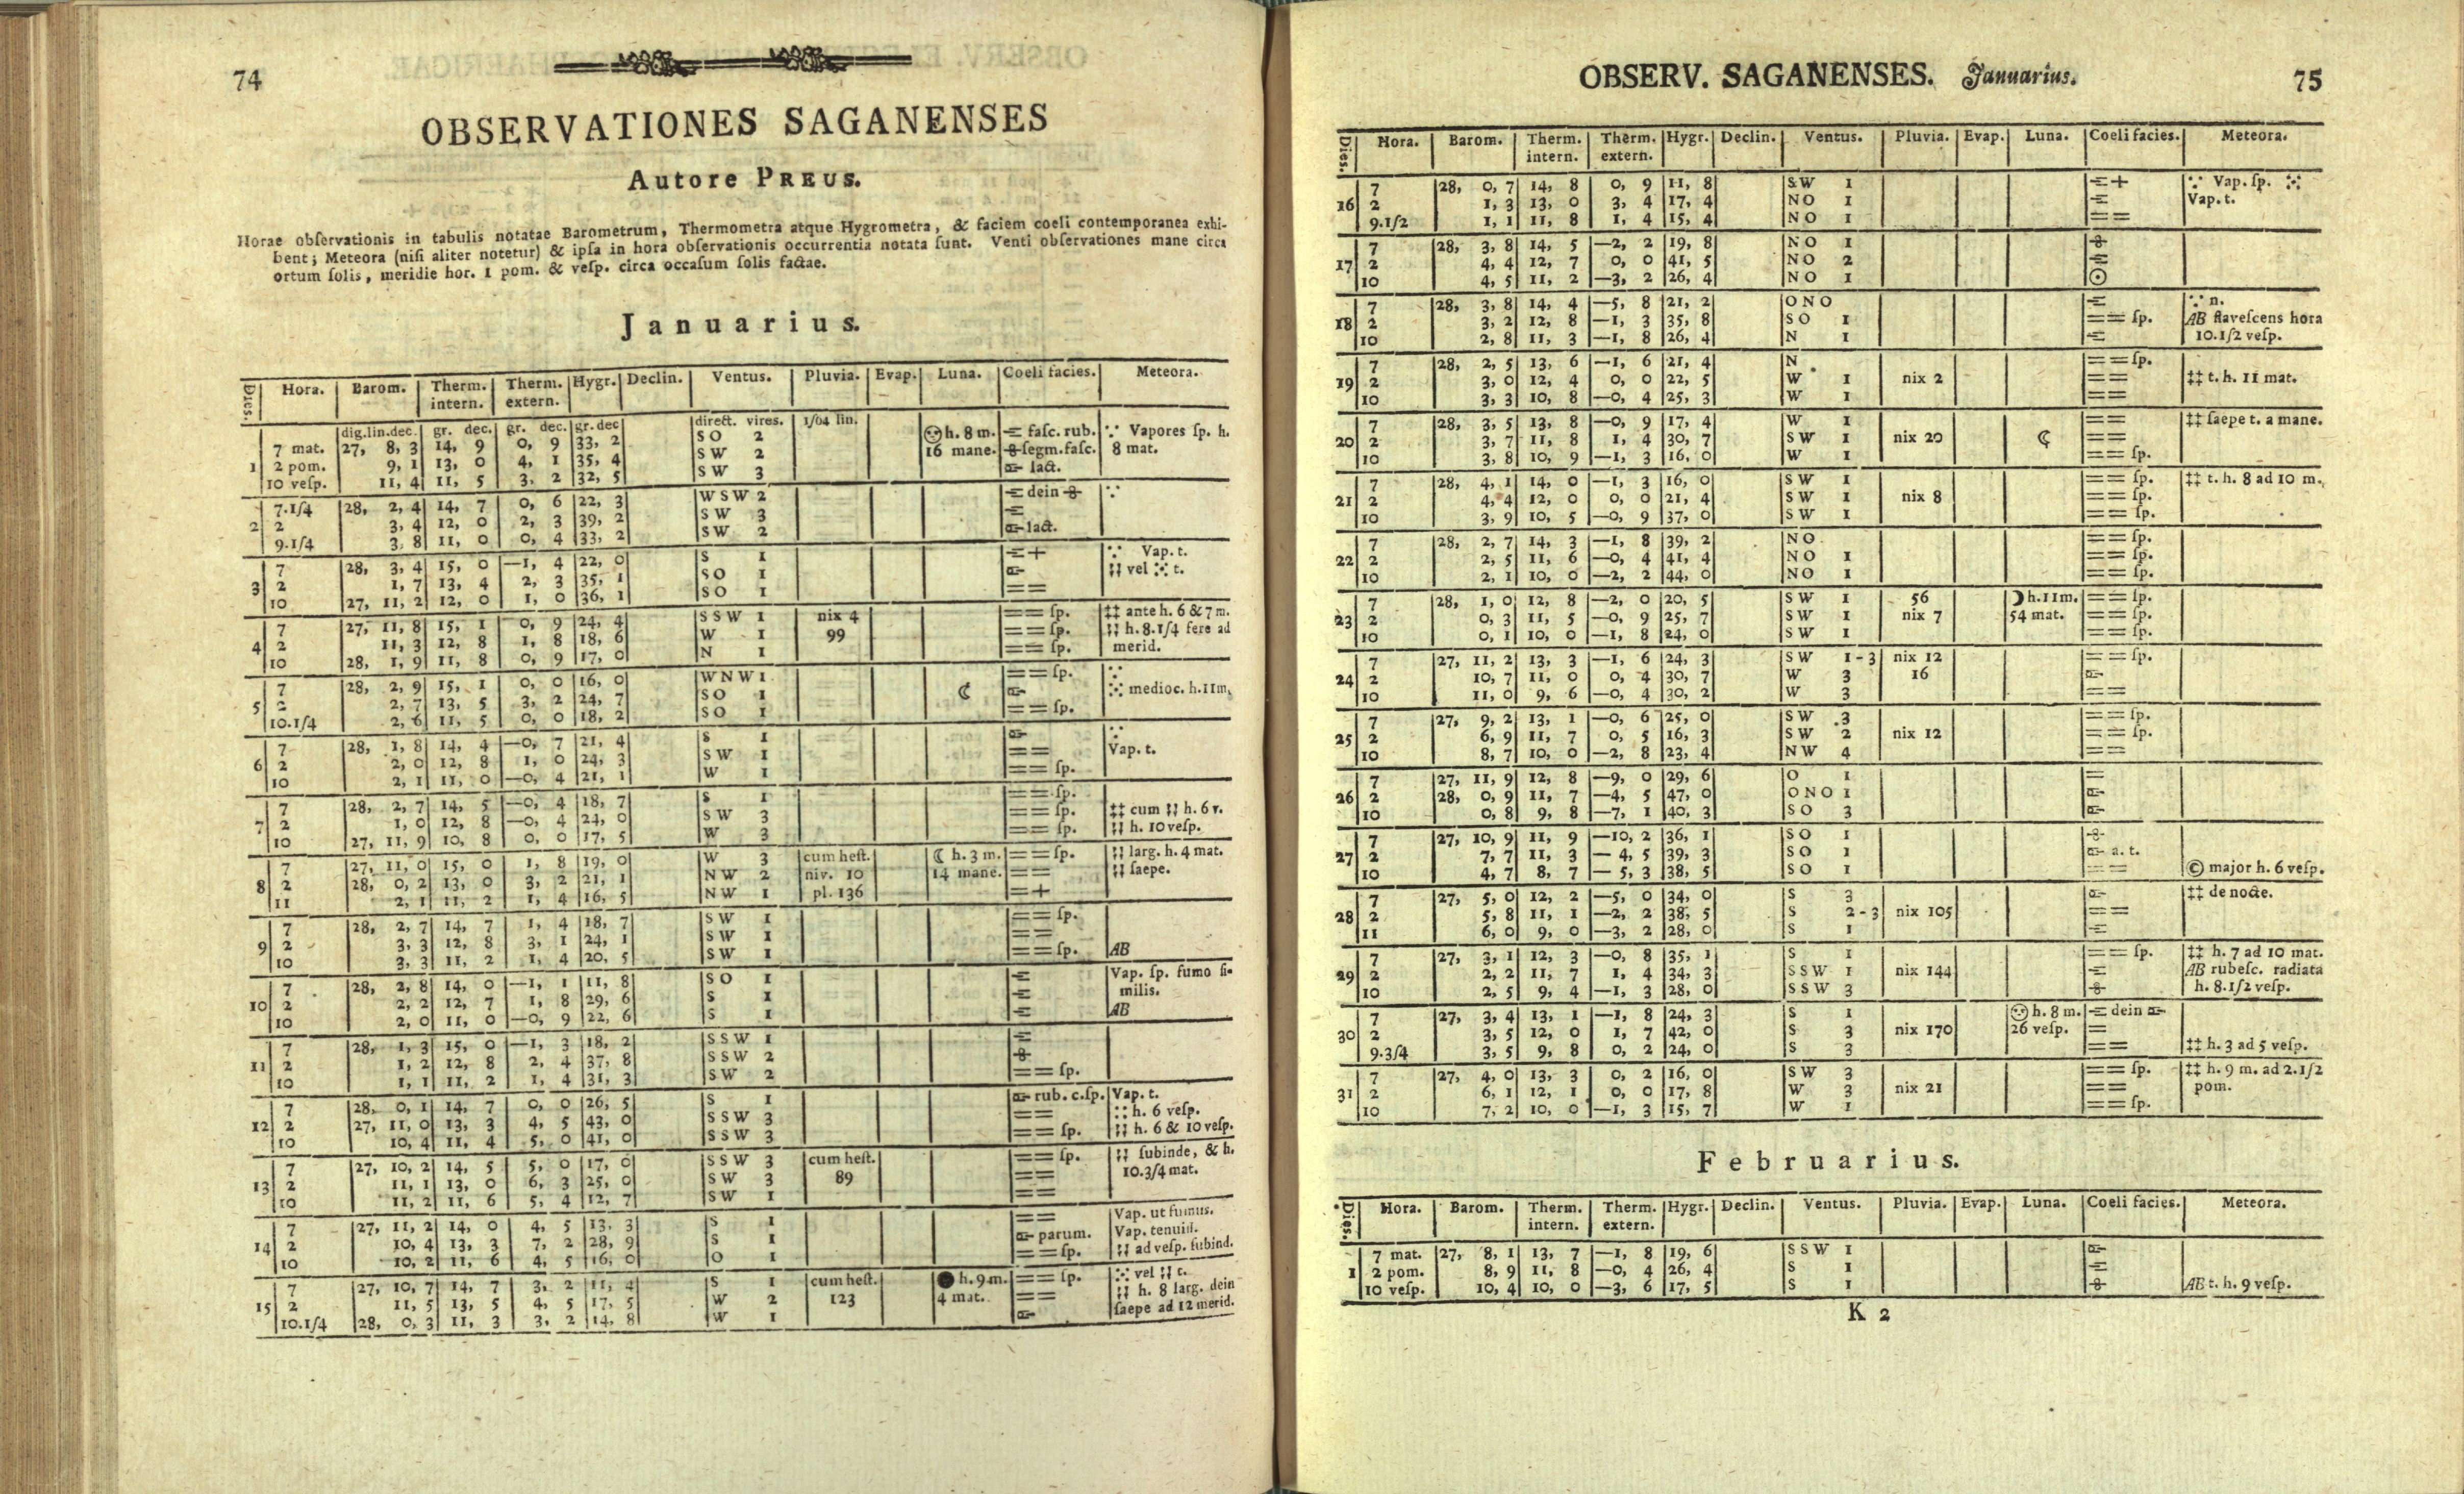 74
OBSERVATIONES SAGANENSES
Autore PREUS.
Horae obſervationis in tabulis notatae Barometrum, Thermometra atque Hygrometra, & faciem coeli contemporanea exhi-
bent; Meteora (niſi aliter notetur) & ipſa in hora obſervationis occurrentia notata ſunt. Venti obſervationes mane circa
ortum ſolis, meridie hor. 1 pom. & veſp. circa occaſum ſolis factae.
Januarius.
Dies. Hora. Barom. Therm. intern. Therm. extern. Hygr. Declin. Ventus. Pluvia. Evap. Luna. Coeli facies. Meteora.
dig.lin.dec. gr. dec. gr. dec. gr.dec direct. vires. 1/64 lin.
1 7 mat. 27, 8, 3 14, 9 0, 9 33, 2 SO 2 h. 8 m. faſc. rub. ∵ Vapores ſp. h.
2 pom. 9, 1 13, 0 4, 1 35, 4 SW 2 16 mane. ſegm.faſc. 8 mat.
10 veſp. 11, 4 11, 5 3, 2 32, 5 SW 3 lact.
2 7.1/4 28, 2, 4 14, 7 0, 6 22, 3 WSW 2 dein ∵
2 3, 4 12, 0 2, 3 39, 2 SW 3
9.1/4 3, 8 11, 0 0, 4 33, 2 SW 2 lact.
3 7 28, 3, 4 15, 0 —1, 4 22, 0 S 1 + ∵ Vap. t.
2 1, 7 13, 4 2, 3 35, 1 SO 1 ;; vel ⁙ t.
10 27, 11, 2 12, 0 1, 0 36, 1 SO 1 ==
4 7 27, 11, 8 15, 1 0, 9 24, 4 SSW 1 nix 4 == ſp. ‡‡ ante h. 6 & 7 m.
2 11, 3 12, 8 1, 8 18, 6 W 1 99 == ſp. ;; h. 8.1/4 fere ad
10 28, 1, 9 11, 8 0, 9 17, 0 N 1 == ſp. merid.
5 7 28, 2, 9 15, 1 0, 0 16, 0 WNW 1 == ſp. ∵
2 2, 7 13, 5 3, 2 24, 7 SO 1 ☾ ⁙ medioc. h.11m.
10.1/4 2, 6 11, 5 0, 0 18, 2 SO 1 == ſp.
6 7 28, 1, 8 14, 4 —0, 7 21, 4 S 1 ∵
2 2, 0 12, 8 1, 0 24, 3 SW 1 == Vap. t.
10 2, 1 11, 0 —0, 4 21, 1 W 1 == ſp.
7 7 28, 2, 7 14, 5 —0, 4 18, 7 S 1 == ſp.
2 1, 0 12, 8 —0, 4 24, 0 SW 3 == ſp. ‡‡ cum ;; h. 6 v.
10 27, 11, 9 10, 8 0, 0 17, 5 W 3 == ſp. ;; h. 10 veſp.
8 7 27, 11, 0 15, 0 1, 8 19, 0 W 3 cum heſt. ☾ h. 3 m. == ſp. ;; larg. h. 4 mat.
2 28, 0, 2 13, 0 3, 2 21, 1 NW 2 niv. 10 14 mane. == ;; ſaepe.
11 2, 1 11, 2 1, 4 16, 5 NW 1 pl. 136 +
9 7 28, 2, 7 14, 7 1, 4 18, 7 SW 1 == ſp.
2 3, 3 12, 8 3, 1 24, 1 SW 1 ==
10 3, 3 11, 2 1, 4 20, 5 SW 1 == ſp. AB
10 7 28, 2, 8 14, 0 —1, 1 11, 8 SO 1 Vap. ſp. fumo ſi-
2 2, 2 12, 7 1, 8 29, 6 S 1 milis.
10 2, 0 11, 0 —0, 9 22, 6 S 1 AB
11 7 28, 1, 3 15, 0 —1, 3 18, 2 SSW 1
2 1, 2 12, 8 2, 4 37, 8 SSW 2
10 1, 1 11, 2 1, 4 31, 3 SW 2 == ſp.
12 7 28, 0, 1 14, 7 0, 0 26, 5 S 1 rub. c. ſp. Vap. t.
2 27, 11, 0 13, 3 4, 5 43, 0 SSW 3 == :: h. 6 veſp.
10 10, 4 11, 4 5, 0 41, 0 SSW 3 == ſp. ;; h. 6 & 10 veſp.
13 7 27, 10, 2 14, 5 5, 0 17, 0 SSW 3 cum heſt. == ſp. ;; ſubinde, & h.
2 11, 1 13, 0 6, 3 25, 0 SW 3 89 == 10.3/4 mat.
10 11, 2 11, 6 5, 4 12, 7 SW 1 ==
14 7 27, 11, 2 14, 0 4, 5 13, 3 S 1 == Vap. ut fumus.
2 10, 4 13, 3 7, 2 28, 9 S 1 parum. Vap. tenuiſſ.
10 10, 2 11, 6 4, 5 16, 0 O 1 == ſp. ;; ad veſp. ſubind.
15 7 27, 10, 7 14, 7 3, 2 11, 4 S 1 cum heſt. ● h. 9 m. == ſp. ⁙ vel ;; t.
2 11, 5 13, 5 4, 5 17, 5 W 2 123 4 mat. == ;; h. 8 larg. dein
10.1/4 28, 0, 3 11, 3 3, 2 14, 8 W 1 ſaepe ad 12 merid.
OBSERV. SAGANENSES. Januarius. 75
Dies. Hora. Barom. Therm. intern. Therm. extern. Hygr. Declin. Ventus. Pluvia. Evap. Luna. Coeli facies. Meteora.
16 7 28, 0, 7 14, 8 0, 9 11, 8 SW 1 + ∵ Vap. ſp. ⁙
2 1, 3 13, 0 3, 4 17, 4 NO 1 Vap. t.
9.1/2 1, 1 11, 8 1, 4 15, 4 NO 1 ==
17 7 28, 3, 8 14, 5 —2, 2 19, 8 NO 1
2 4, 4 12, 7 0, 0 41, 5 NO 2
10 4, 5 11, 2 —3, 2 26, 4 NO 1 ☉
18 7 28, 3, 8 14, 4 —5, 8 21, 2 ONO ∵ n.
2 3, 2 12, 8 —1, 3 35, 8 SO 1 == ſp. AB flaveſcens hora
10 2, 8 11, 3 —1, 8 26, 4 N 1 10.1/2 veſp.
19 7 28, 2, 5 13, 6 —1, 6 21, 4 N == ſp.
2 3, 0 12, 4 0, 0 22, 5 W 1 nix 2 == ‡‡ t. h. 11 mat.
10 3, 3 10, 8 —0, 4 25, 3 W 1 ==
20 7 28, 3, 5 13, 8 —0, 9 17, 4 W 1 == ‡‡ ſaepe t. a mane.
2 3, 7 11, 8 1, 4 30, 7 SW 1 nix 20 ☾ ==
10 3, 8 10, 9 —1, 3 16, 0 W 1 == ſp.
21 7 28, 4, 1 14, 0 —1, 3 16, 0 SW 1 == ſp. ‡‡ t. h. 8 ad 10 m.
2 4, 4 12, 0 0, 0 21, 4 SW 1 nix 8 == ſp.
10 3, 9 10, 5 —0, 9 37, 0 SW 1 == ſp.
22 7 28, 2, 7 14, 3 —1, 8 39, 2 NO == ſp.
2 2, 5 11, 6 —0, 4 41, 4 NO 1 == ſp.
10 2, 1 10, 0 —2, 2 44, 0 NO 1 == ſp.
23 7 28, 1, 0 12, 8 —2, 0 20, 5 SW 1 56 ☽ h.11m. == ſp.
2 0, 3 11, 5 —0, 9 25, 7 SW 1 nix 7 54 mat. == ſp.
10 0, 1 10, 0 —1, 8 24, 0 SW 1 == ſp.
24 7 27, 11, 2 13, 3 —1, 6 24, 3 SW 1-3 nix 12 == ſp.
2 10, 7 11, 0 0, 4 30, 7 W 3 16
10 11, 0 9, 6 —0, 4 30, 2 W 3 ==
25 7 27, 9, 2 13, 1 —0, 6 25, 0 SW 3 == ſp.
2 6, 9 11, 7 0, 5 16, 3 SW 2 nix 12 == ſp.
10 8, 7 10, 0 —2, 8 23, 4 NW 4 ==
26 7 27, 11, 9 12, 8 —9, 0 29, 6 O 1 =
2 28, 0, 9 11, 7 —4, 5 47, 0 ONO 1
10 0, 8 9, 8 —7, 1 40, 3 SO 3
27 7 27, 10, 9 11, 9 —10, 2 36, 1 SO 1
2 7, 7 11, 3 —4, 5 39, 3 SO 1 a. t.
10 4, 7 8, 7 —5, 3 38, 5 SO 1 == © major h. 6 veſp.
28 7 27, 5, 0 12, 2 —5, 0 34, 0 S 3 ‡‡ de nocte.
2 5, 8 11, 1 —2, 2 38, 5 S 2-3 nix 105 ==
11 6, 0 9, 0 —3, 2 28, 0 S 1
29 7 27, 3, 1 12, 3 —0, 8 35, 1 S 1 == ſp. ‡‡ h. 7 ad 10 mat.
2 2, 2 11, 7 1, 4 34, 3 SSW 1 nix 144 AB rubeſc. radiata
10 2, 5 9, 4 —1, 3 28, 0 SSW 3 h. 8.1/2 veſp.
30 7 27, 3, 4 13, 1 —1, 8 24, 3 S 1 h. 8 m. dein
2 3, 5 12, 0 1, 7 42, 0 S 3 nix 170 26 veſp. =
9.3/4 3, 5 9, 8 0, 2 24, 0 S 3 == ‡‡ h. 3 ad 5 veſp.
31 7 27, 4, 0 13, 3 0, 2 16, 0 SW 3 == ſp. ‡‡ h. 9 m. ad 2.1/2
2 6, 1 12, 1 0, 0 17, 8 W 3 nix 21 == pom.
10 7, 2 10, 0 —1, 3 15, 7 W 1 == ſp.
Februarius.
Dies. Hora. Barom. Therm. intern. Therm. extern. Hygr. Declin. Ventus. Pluvia. Evap. Luna. Coeli facies. Meteora.
1 7 mat. 27, 8, 1 13, 7 —1, 8 19, 6 SSW 1
2 pom. 8, 9 11, 8 —0, 4 26, 4 S 1
10 veſp. 10, 4 10, 0 —3, 6 17, 5 S 1 AB t. h. 9 veſp.
K 2